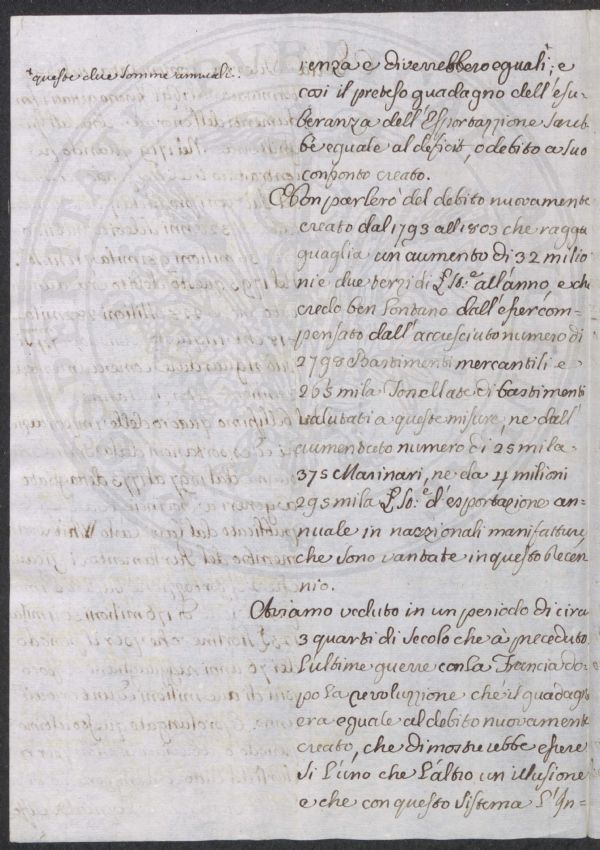 queste due somme annuali:
renza e diverrebbero eguali; e
così il preteso guadagno dell'esu-
beranza dell'Esportazzione sareb-
be eguale al deficit, o debito a suo
conponto creato.
Non parlerò del debito nuovamente
creato dal 1793 all 1803 che raggu
guaglia un aumento di 32 milio
ni e due terzi di all'anno, e che
credo ben lontano dall'esser com-
pensato dall'accresciuto numero di
2798 Bastimenti mercantili e
265 mila Tonellate di bastimenti
valutati a queste misure, ne dall'
aumentato numero di 25 mila
375 Marinari, ne da 4 milioni
295 mila d'esportazione an-
nuale in nazzionali manifatture,
che sono vantate in questo Decen
nio.
Abbiamo veduto in un periodo di circa
3 quarti di secolo che à preceduto
l'ultime guerre con la Francia do-
po la revoluzzione che il guadagno
era eguale al debito nuovamente
creato, che dimostrerebbe essere
sì l'uno che l'altro un illusione
e che con questo sistema l'In-